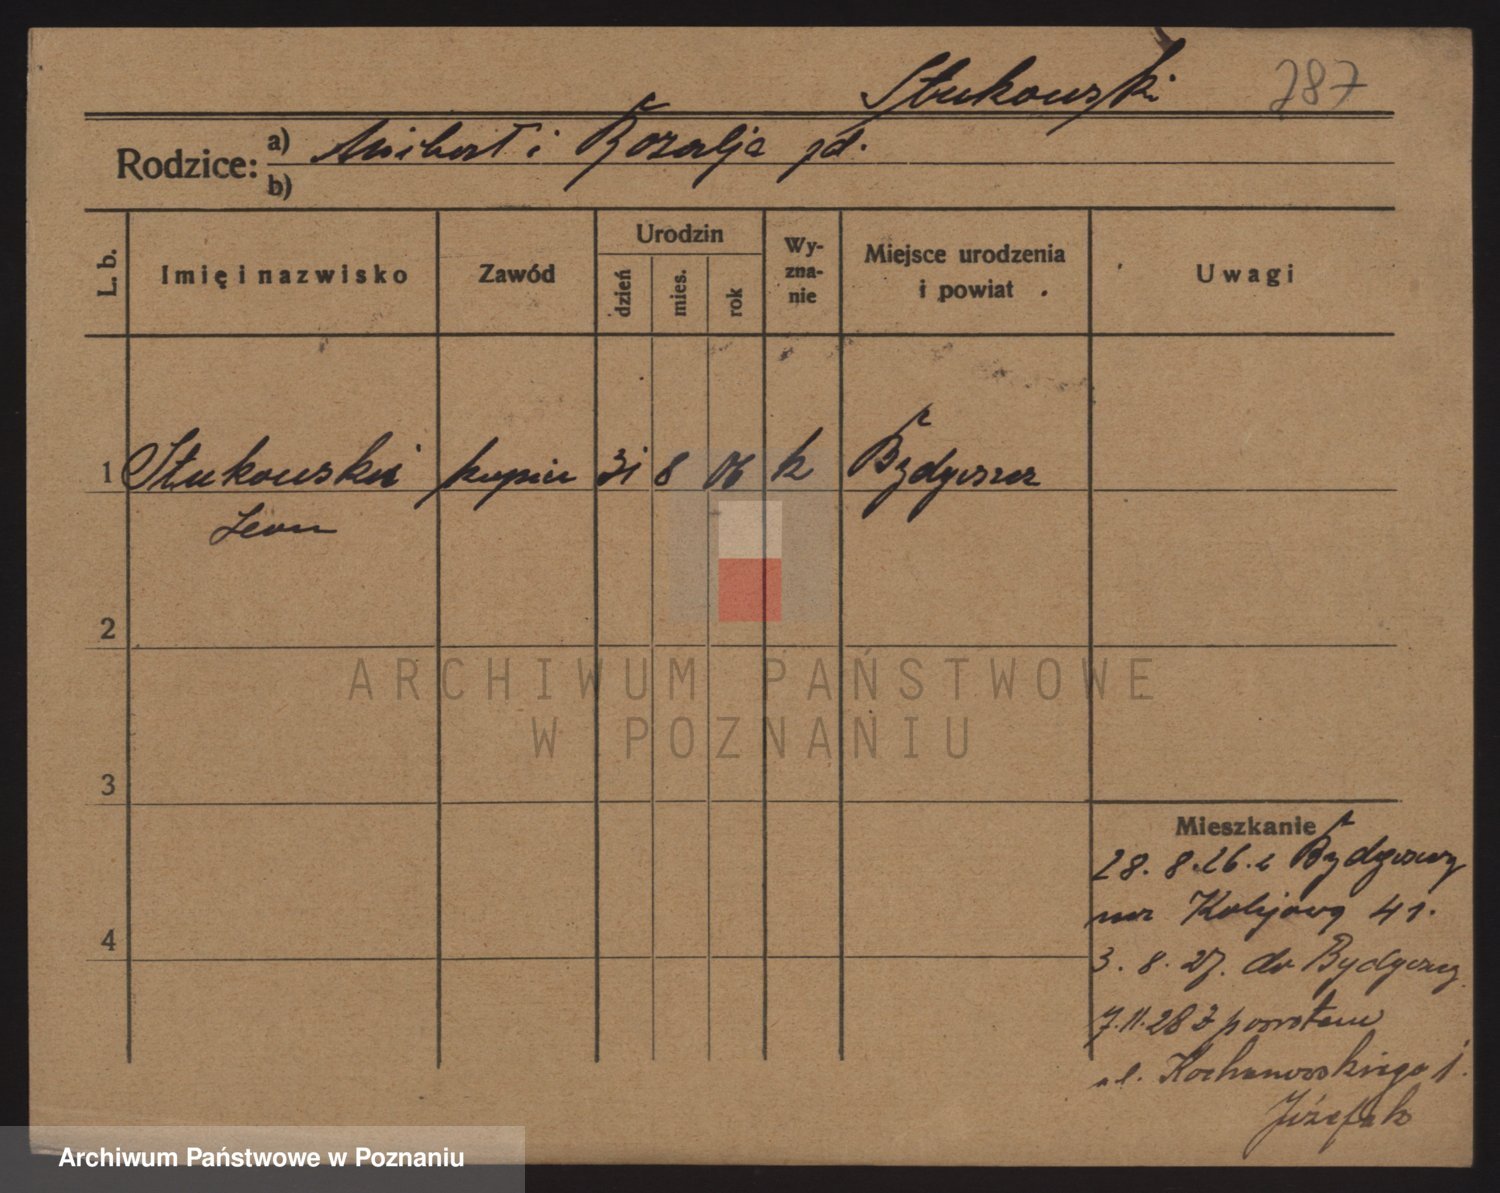 Stukowski 287
Rodzice: a) i Rozalja
b)
L. b. Imię i nazwisko Zawód Urodzin dzień mies. rok Wy-zna-nie Miejsce urodzenia i powiat Uwagi
1 Stukowski kupiec 31 8 06 k Bydgoszcz
Leon
2
ARCHIWUM PAŃSTWOWE
W POZNANIU
3
Mieszkanie
28. 8. 26. z Bydgoszczy
41.
4
3. 8. 27. do Bydgoszczy
7.11.28 z powrotem
ul. Kochanowskiego 1.
Archiwum Państwowe w Poznaniu